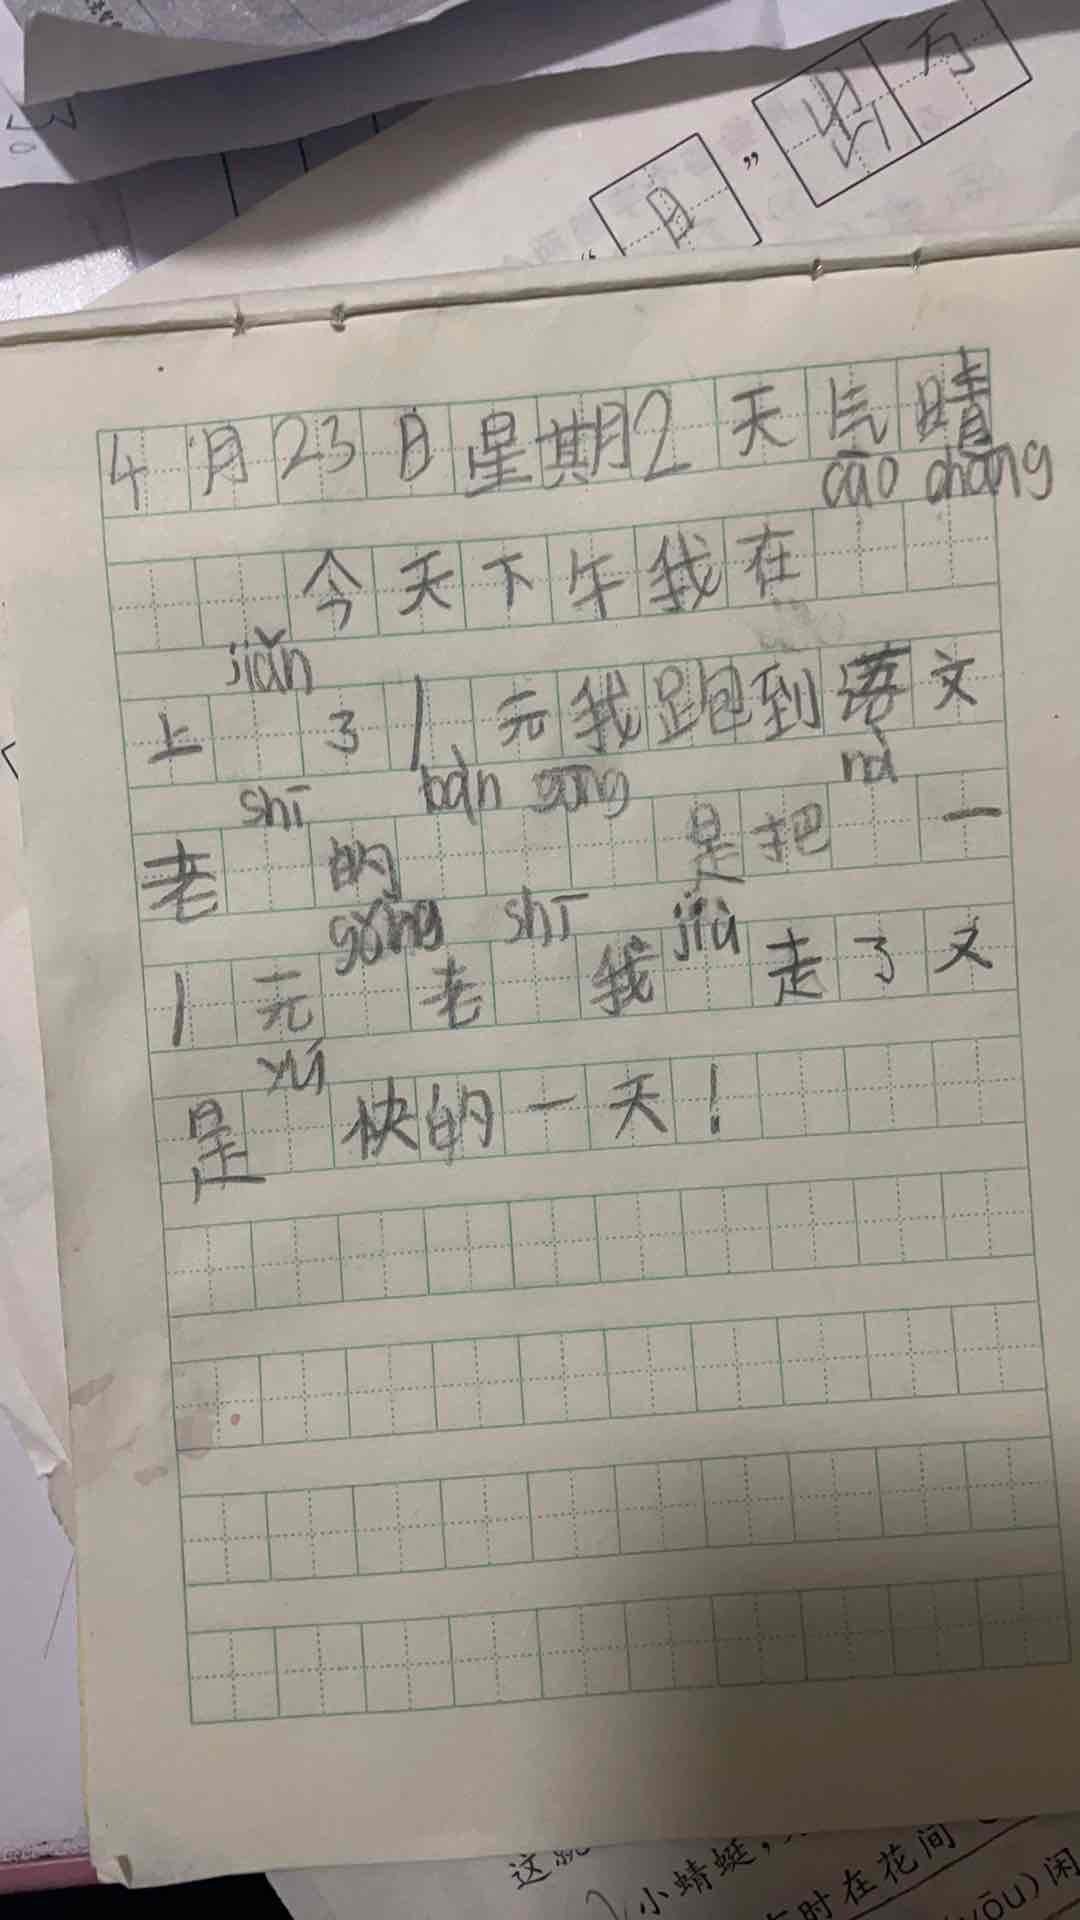 出 万
“ 日 ”
4月23日星期2 天气晴
cāo chǎng
今天下午我在
jiǎn
上 了1元我跑到语文
shī bàn gōng nà
老 的 是把 一
gōng shī jiù
1元 老 我 走了又
yú
是 快的一天!
小蜻蜓,
时在花间
(yōu)闲